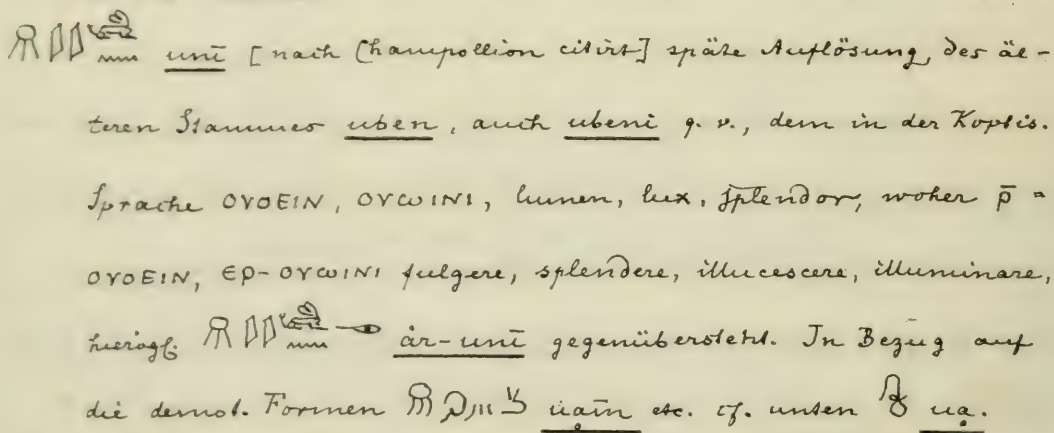 unī [nach Champollion citirt] späte Auflösung, des äl-
teren Stammes uben, auch ubeni q. v., dem in der Koptis.
Sprache ⲟⲩⲟⲉⲓⲛ, ⲟⲩⲱⲓⲛⲓ, lumen, lux, splendor, woher ⲣ̄-
ⲟⲩⲟⲉⲓⲛ, ⲉⲣ-ⲟⲩⲱⲓⲛⲓ fulgere, splendere, illucescere, illuminare,
hierogl. år-unī gegenübersteht. In Bezug auf
die demot. Formen etc. cf. unten